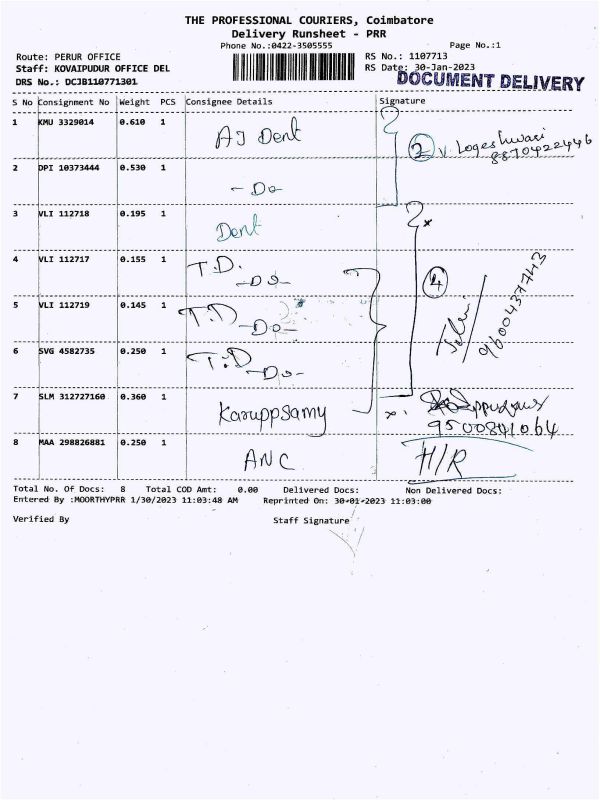 THE PROFESSIONAL COURIERS, Coimbatore
Delivery Runsheet - PRR
Phone No.:0422-3505555 Page No.:1
Route: PERUR OFFICE RS No.: 1107713
Staff: KOVAIPUDUR OFFICE DEL RS Date: 30-Jan-2023
DRS No.: DCJB110771301 DOCUMENT DELIVERY
S No Consignment No Weight PCS Consignee Details Signature
1 KMU 3329014 0.610 1 AJ Dent
2 V. Logeshwari
8870422446
2 DPI 10373444 0.530 1 - Do
3 VLI 112718 0.195 1 Dent
4 VLI 112717 0.155 1 T.D. -Do- 4
9600437743
5 VLI 112719 0.145 1 T.D -Do-
6 SVG 4582735 0.250 1 T.D -Do-
7 SLM 312727160 0.360 1 Karuppsamy
9500841064
8 MAA 298826881 0.250 1 ANC H/R
Total No. Of Docs: 8 Total COD Amt: 0.00 Delivered Docs: Non Delivered Docs:
Entered By :MOORTHYPRR 1/30/2023 11:03:48 AM Reprinted On: 30-01-2023 11:03:00
Verified By Staff Signature